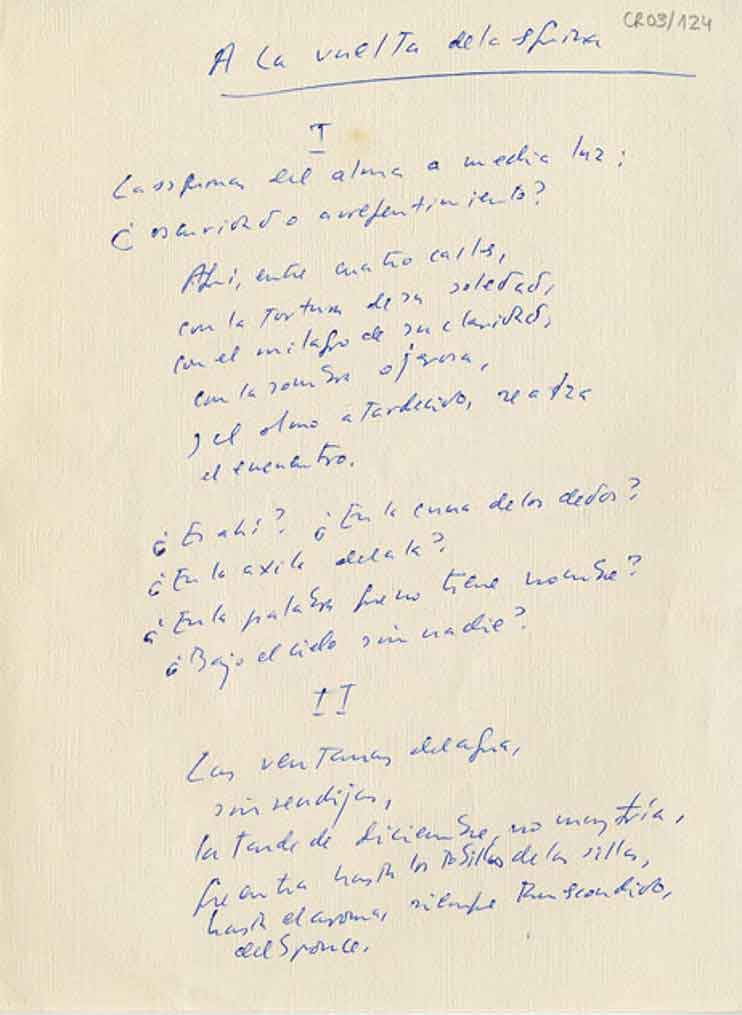 CR03/124
A la vuelta de la esquina
I
Las esquinas del alma a media luz:
¿oscuridad o arrepentimiento?
Aquí, entre cuatro calles,
con la tortura de su soledad,
con el milagro de su claridad,
con la sombra ojerosa,
y el olmo atardecido, se alza
el encuentro.
¿Es ahí? ¿En la cuna de los dedos?
¿En la axila del ala?
¿En la palabra que no tiene nombre?
¿Bajo el cielo sin nadie?
II
Las ventanas del agua,
sin rendijas,
la tarde de diciembre, no muy fría,
que entra hasta los tobillos de las sillas,
hasta el aroma, siempre
del